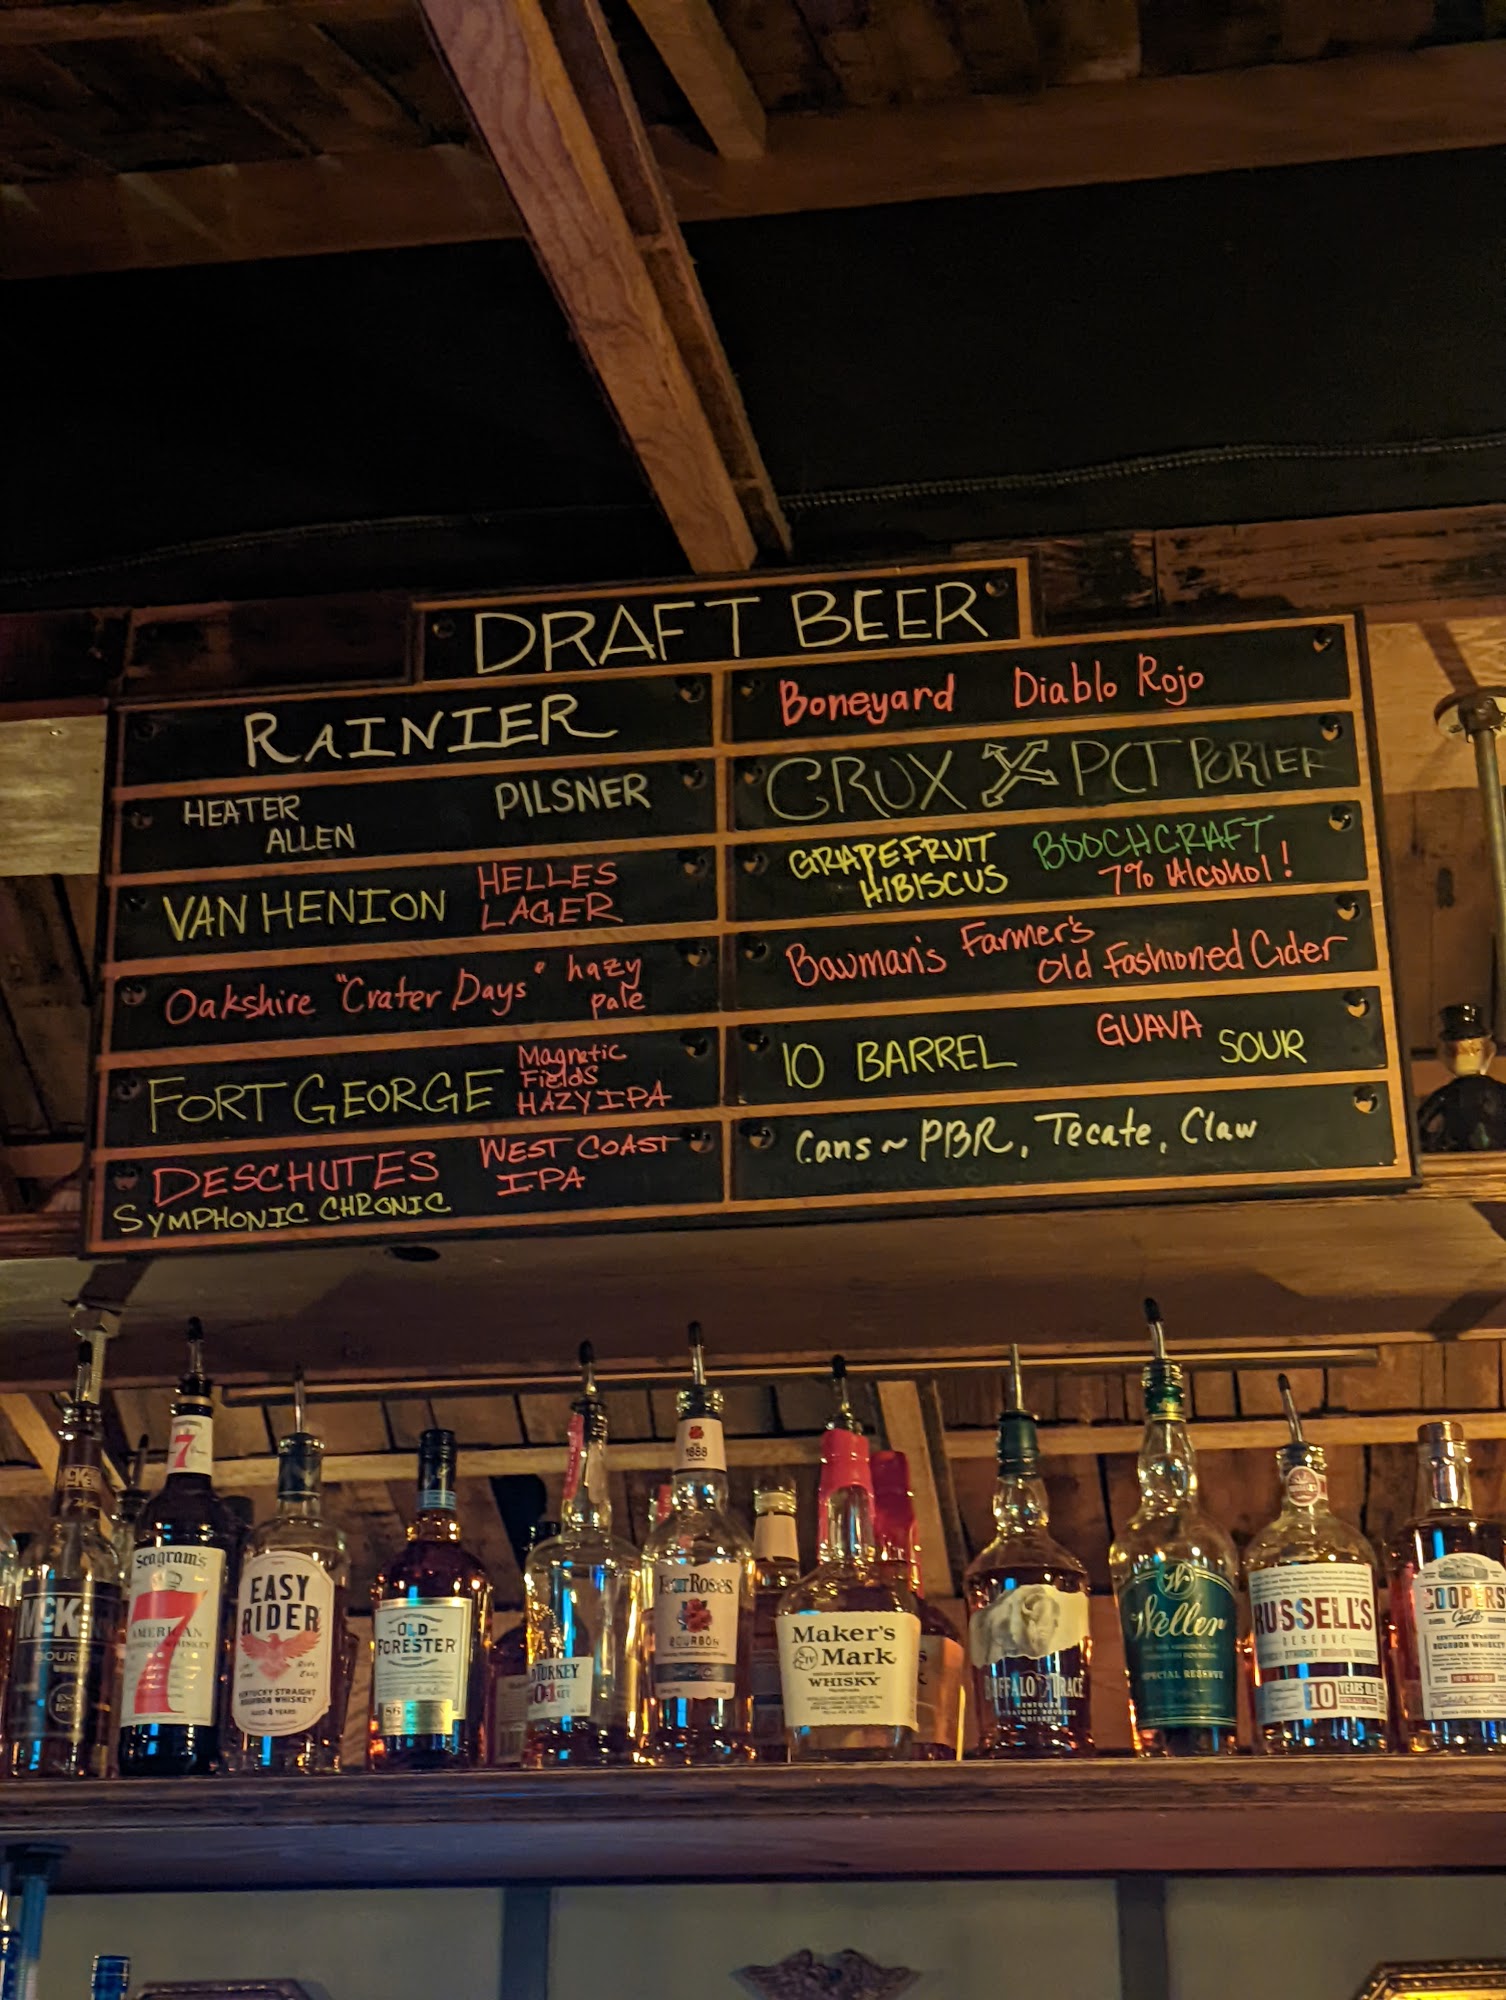 DRAFT BEER
RAINIER
HEATER
ALLEN
PILSNER
VAN HENION
HELLES
LAGER
Oakshire "Crater Days" hazy
pale
FORT GEORGE
Magnetic
Fields
HAZY IPA
DESCHUTES
WEST COAST
IPA
SYMPHONIC CHRONIC
Boneyard Diablo Rojo
CRUX PCT PORTER
GRAPEFRUIT
HIBISCUS
BOOCHCRAFT
7% Alcohol!
Bawman's Farmer's
Old Fashioned Cider
10 BARREL
GUAVA
SOUR
Cans ~ PBR, Tecate, Claw
McK
BOUR
Seagram's
7
AMERICAN
7
EASY
RIDER
KENTUCKY STRAIGHT
BOURBON WHISKEY
AGED 4 YEARS
OLD
FORESTER
86
TURKEY
101
1888
Four Roses
BOURBON
Maker's
Mark
WHISKY
BUFFALO TRACE
KENTUCKY
STRAIGHT BOURBON
W
Weller
SPECIAL RESERVE
RUSSELL'S
RESERVE
10 YEARS OLD
COOPERS'
Craft
KENTUCKY STRAIGHT
BOURBON WHISKEY
100 PROOF